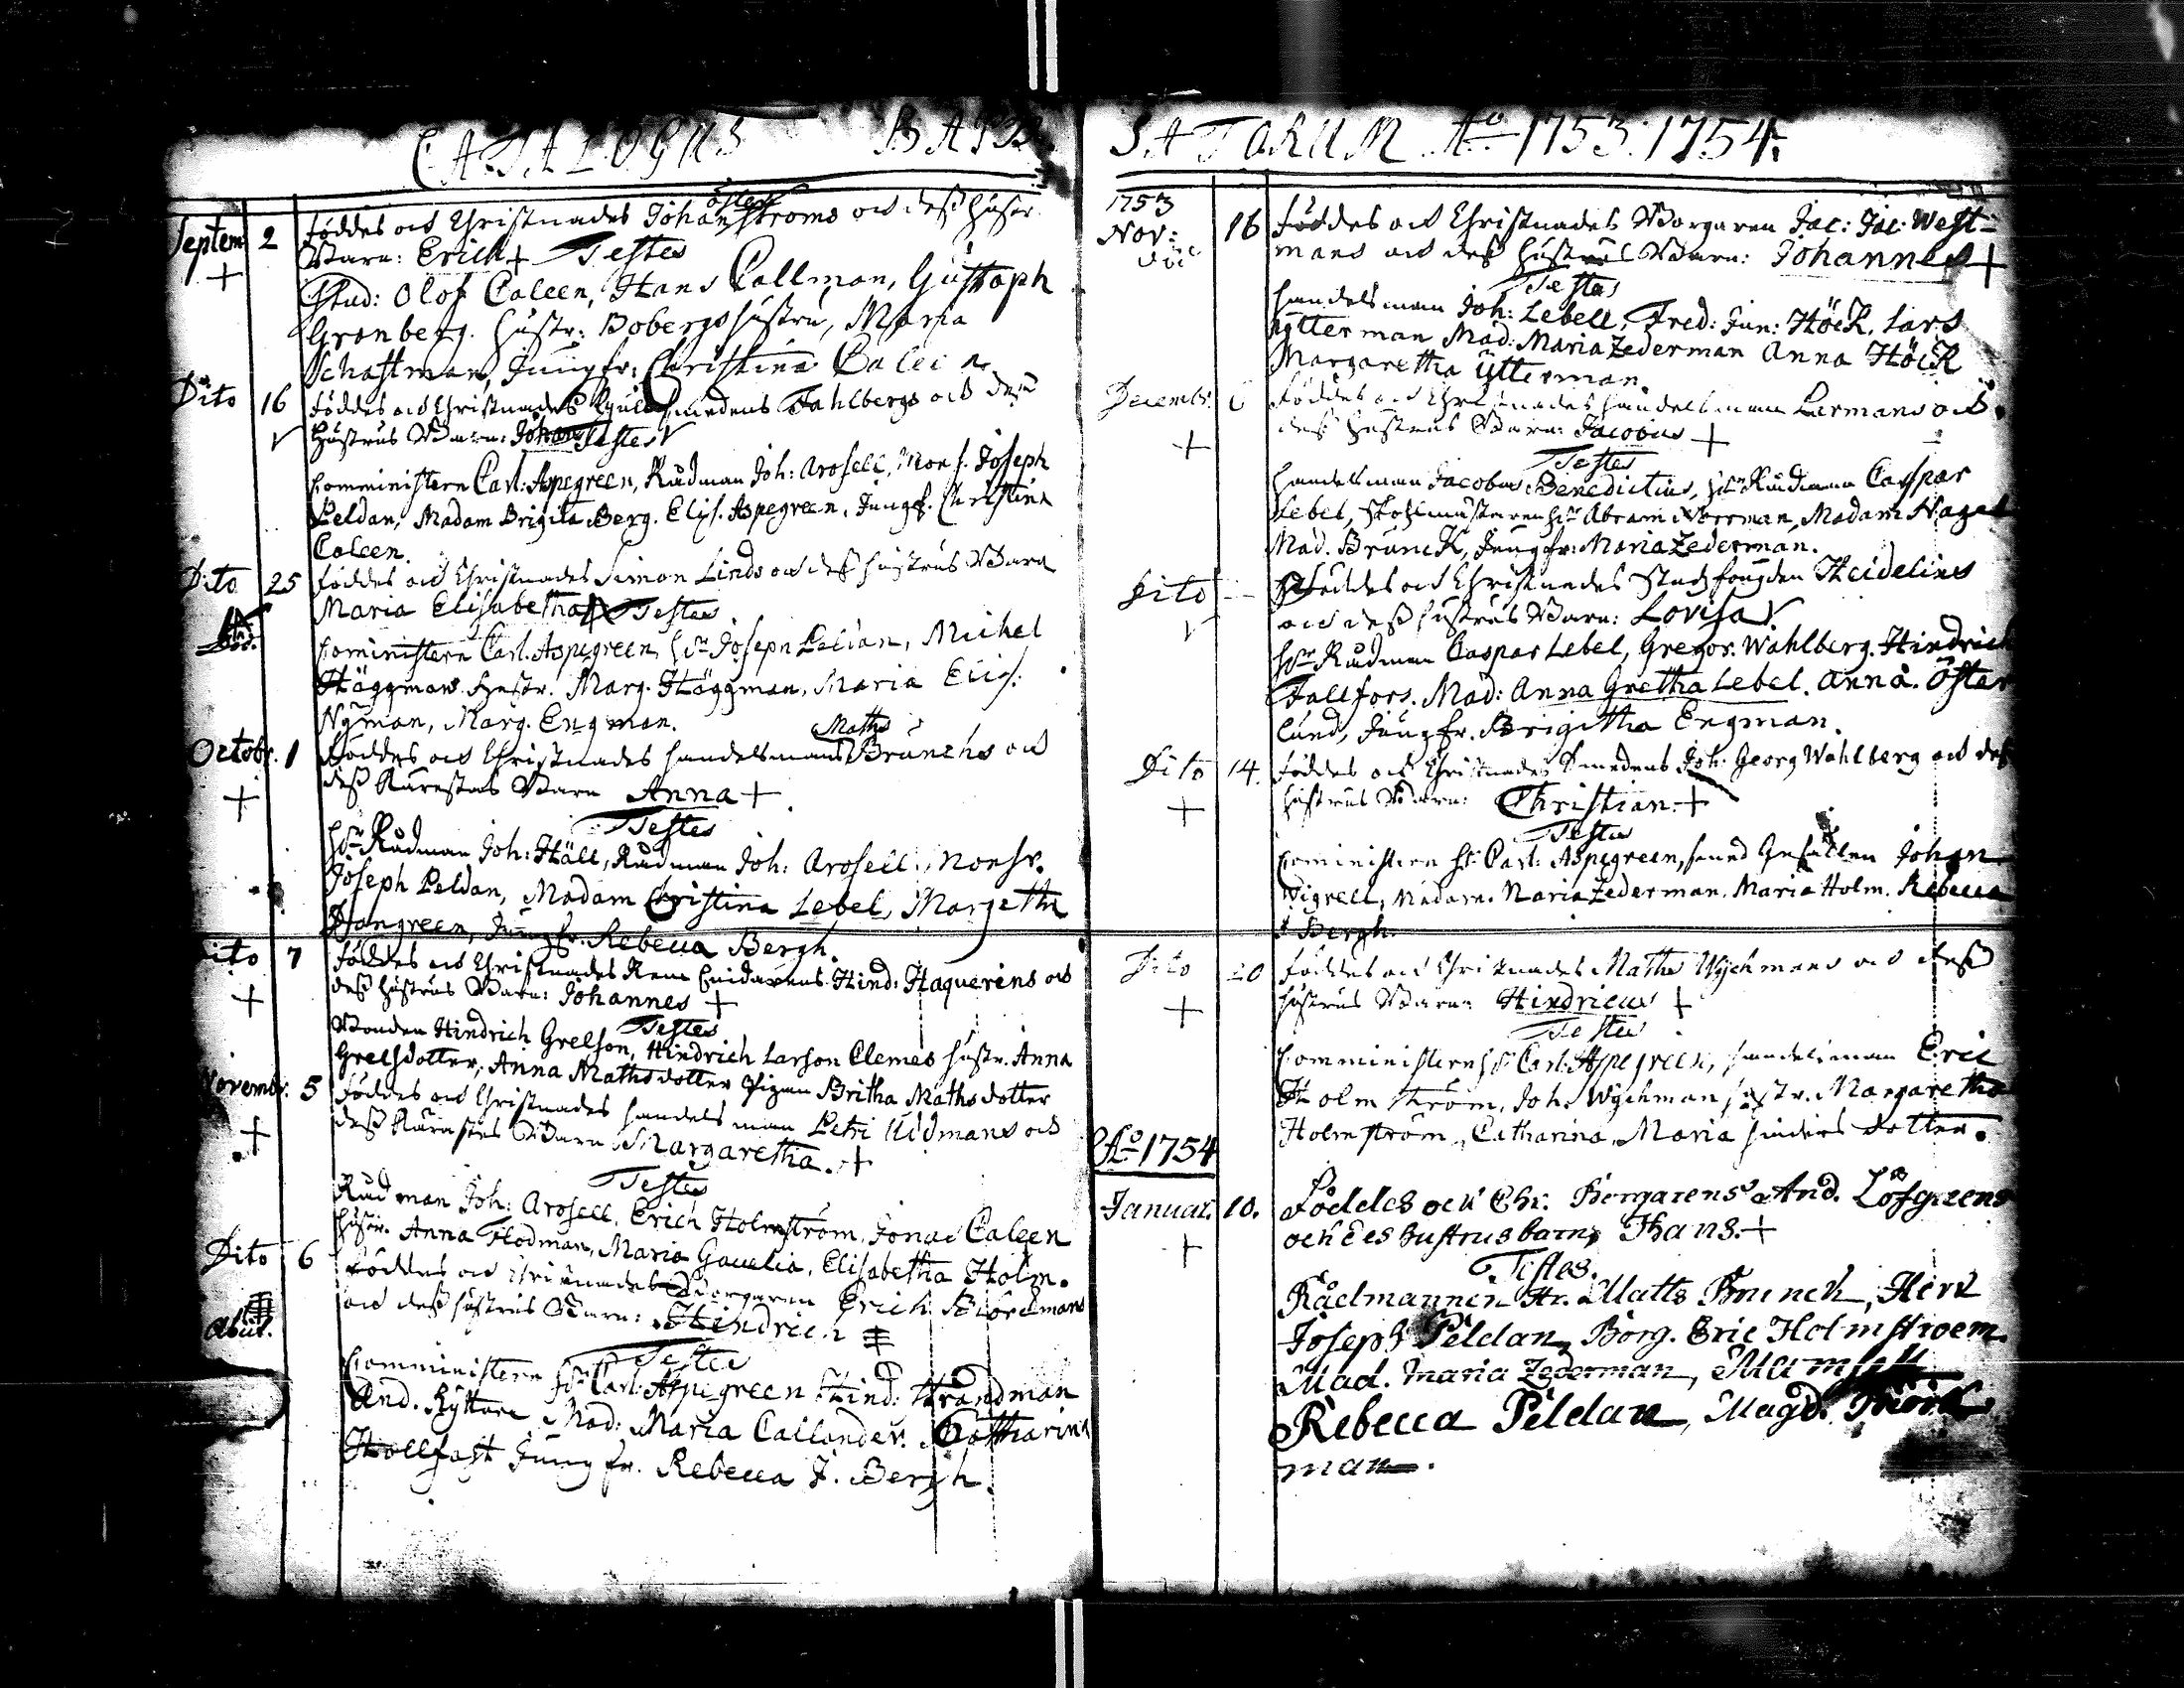 CATALOGUS BAPTI
Septem 2 föddes och Christnades Johan Österströms och deß hustr.
+ Barn: Erich + Testes
Stud: Olof Caleen, Hans Callman, Gustaph
Gronberg. hustr: Bobergs hustru, Maria
Schastman, Jungfr: Christina Caleen
Dito 16 föddes och Christnades Guldsmedens Fahlbergs och deß
hustrus Barn: Johan Testes
Comministern Carl: Aspegreen, Rådman Joh: Arosell, Mons. Joseph
Peldan, Madam Brigita Berg. Elis. Aspegreen, Jungf. Christina
Caleen.
Dito 25 föddes och Christnades Simon Linds och deß hustrus Barn
Maria Elisabetha Testes
död. Comministern Carl. Aspegreen, Hr Joseph Peldan, Michel
Häggman hustr. Marg. Häggman, Maria Elis:
Nyman, Marg. Engman.
Octobr. 1 föddes och Christnades handelsmans Maths Brunchs och
+ deß Kärestas Barn Anna +
Testes
Hr Rådman Joh: Häll, Rådman Joh: Arosell, Monsr.
Joseph Peldan, Madam Christina Lebel, Margetha
Jungfr. Rebecca Bergh.
Dito 7 föddes och Christnades Hind: Haquerins och
+ deß hustrus Barn: Johannes +
Testes
Bonden Hindrich Grelson, Hindrich Larson Clemes hustr. Anna
Grelsdotter, Anna Mathsdotter Pigan Britha Mathsdotter
Novembr. 5 föddes och Christnades handelsman Petri Udmans och
+ deß Kärestas Barn Margaretha. +
Testes
Rådman Joh: Arosell, Erich Holmström, Jonas Caleen
hustr. Anna Hodman, Maria Gauelia, Elisabetha Holm.
Dito 6 föddes och Christnades Borgaren Erich Biörckmans
och deß hustrus Barn: Hindrich
abiit. Testes
Comministern Hr Carl: Aspegreen Hind: Strandman
And. Ryttare Mad: Maria Callander. Catharina
Hollfast Jungfr. Rebecca J. Bergh.
SATORUM Ao 1753. 1754.
1753
Nov: 16 föddes och Christnades Borgaren Jac: Jac: West-
mans och deß hustrus Barn: Johannes +
Testes
handelsman Joh: Lebell, Fred: Jun: Höck, Lars
Ytterman Mad: Maria Zederman Anna Höck
Margaretha Ytterman.
Decembr. 6 föddes och Christnades handelsman Lurmans och
+ deß hustrus Barn: Jacobus +
Testes
handelsman Jacobus Benedictius, Hr Rådman Caspar
Lebel, Hr Abram Norrman, Madam Nagel
Mad. Brunck, Jungfr: Maria Zederman.
Dito föddes och Christnades Stadsfougden Heidelins
och deß hustrus Barn: Lovisa
Hr Rådman Caspar Lebel, Gregor. Wahlberg. Hindrich
Fallfors. Mad: Anna Gretha Lebel. Anna. Öster
lund, Jungfr. Brigitha Engman.
Dito 14. föddes och Christnades Smedens Joh. Georg Wahlberg och deß
+ hustrus Barn: Christian. +
Testes
Comministern Hr Carl: Aspegreen, smed Gesällen Johan
Wigrell, Madam. Maria Zederman. Maria Holm. Rebecca
J Bergh.
Dito 20 föddes och Christnades Maths Wychmans och deß
+ hustrus Barn: Hindricus +
Testes
Comministern Hr Carl. Aspegreen, handelsman Eric
Holmström, Joh. Wychman, hustr. Margaretha
Holmström, Catharina, Maria hinders dotter.
Ao 1754
Januar. 10. Föddes och Chr. Borgarens And. Löfgreens
+ och des hustrus barn, Hans. +
Testes.
Rådmannen Hr. Matts Brunck, Herr
Joseph Peldan, Borg. Eric Holmstroem.
Mad. Maria Zederman, Mamsell
Rebecca Peldan, Magd.
man.